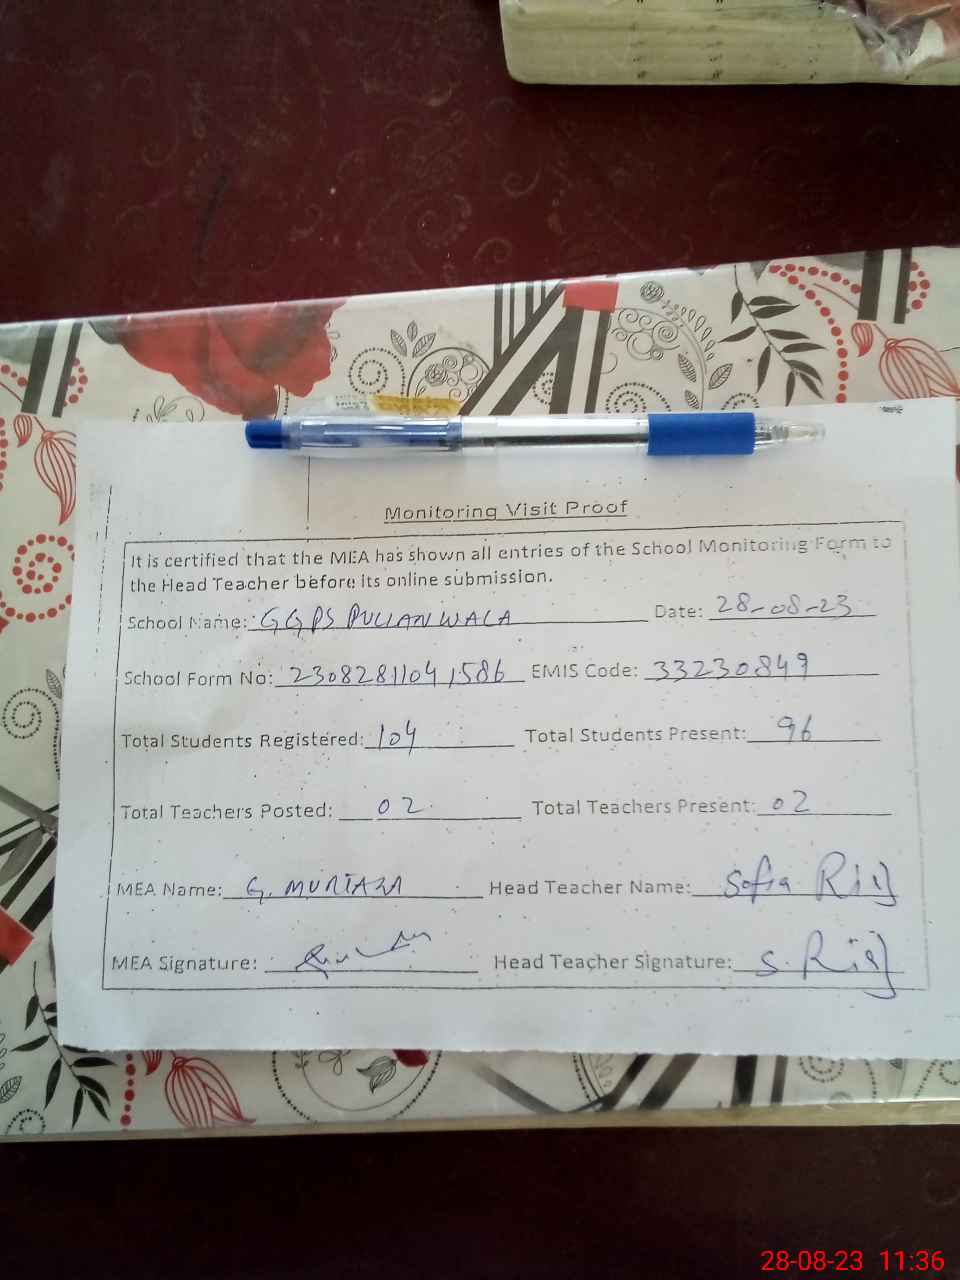 Monitoring Visit Proof
It is certified that the MEA has shown all entries of the School Monitoring Form to
the Head Teacher before its online submission.
School Name: GGPS PULLANWALA Date: 28-08-23
School Form No: 23082811041586 EMIS Code: 33230849
Total Students Registered: 104 Total Students Present: 96
Total Teachers Posted: 02 Total Teachers Present: 02
MEA Name: G. MURTAZA Head Teacher Name: Sofia Riaz
MEA Signature: Head Teacher Signature: S. Riaz
28-08-23 11:36